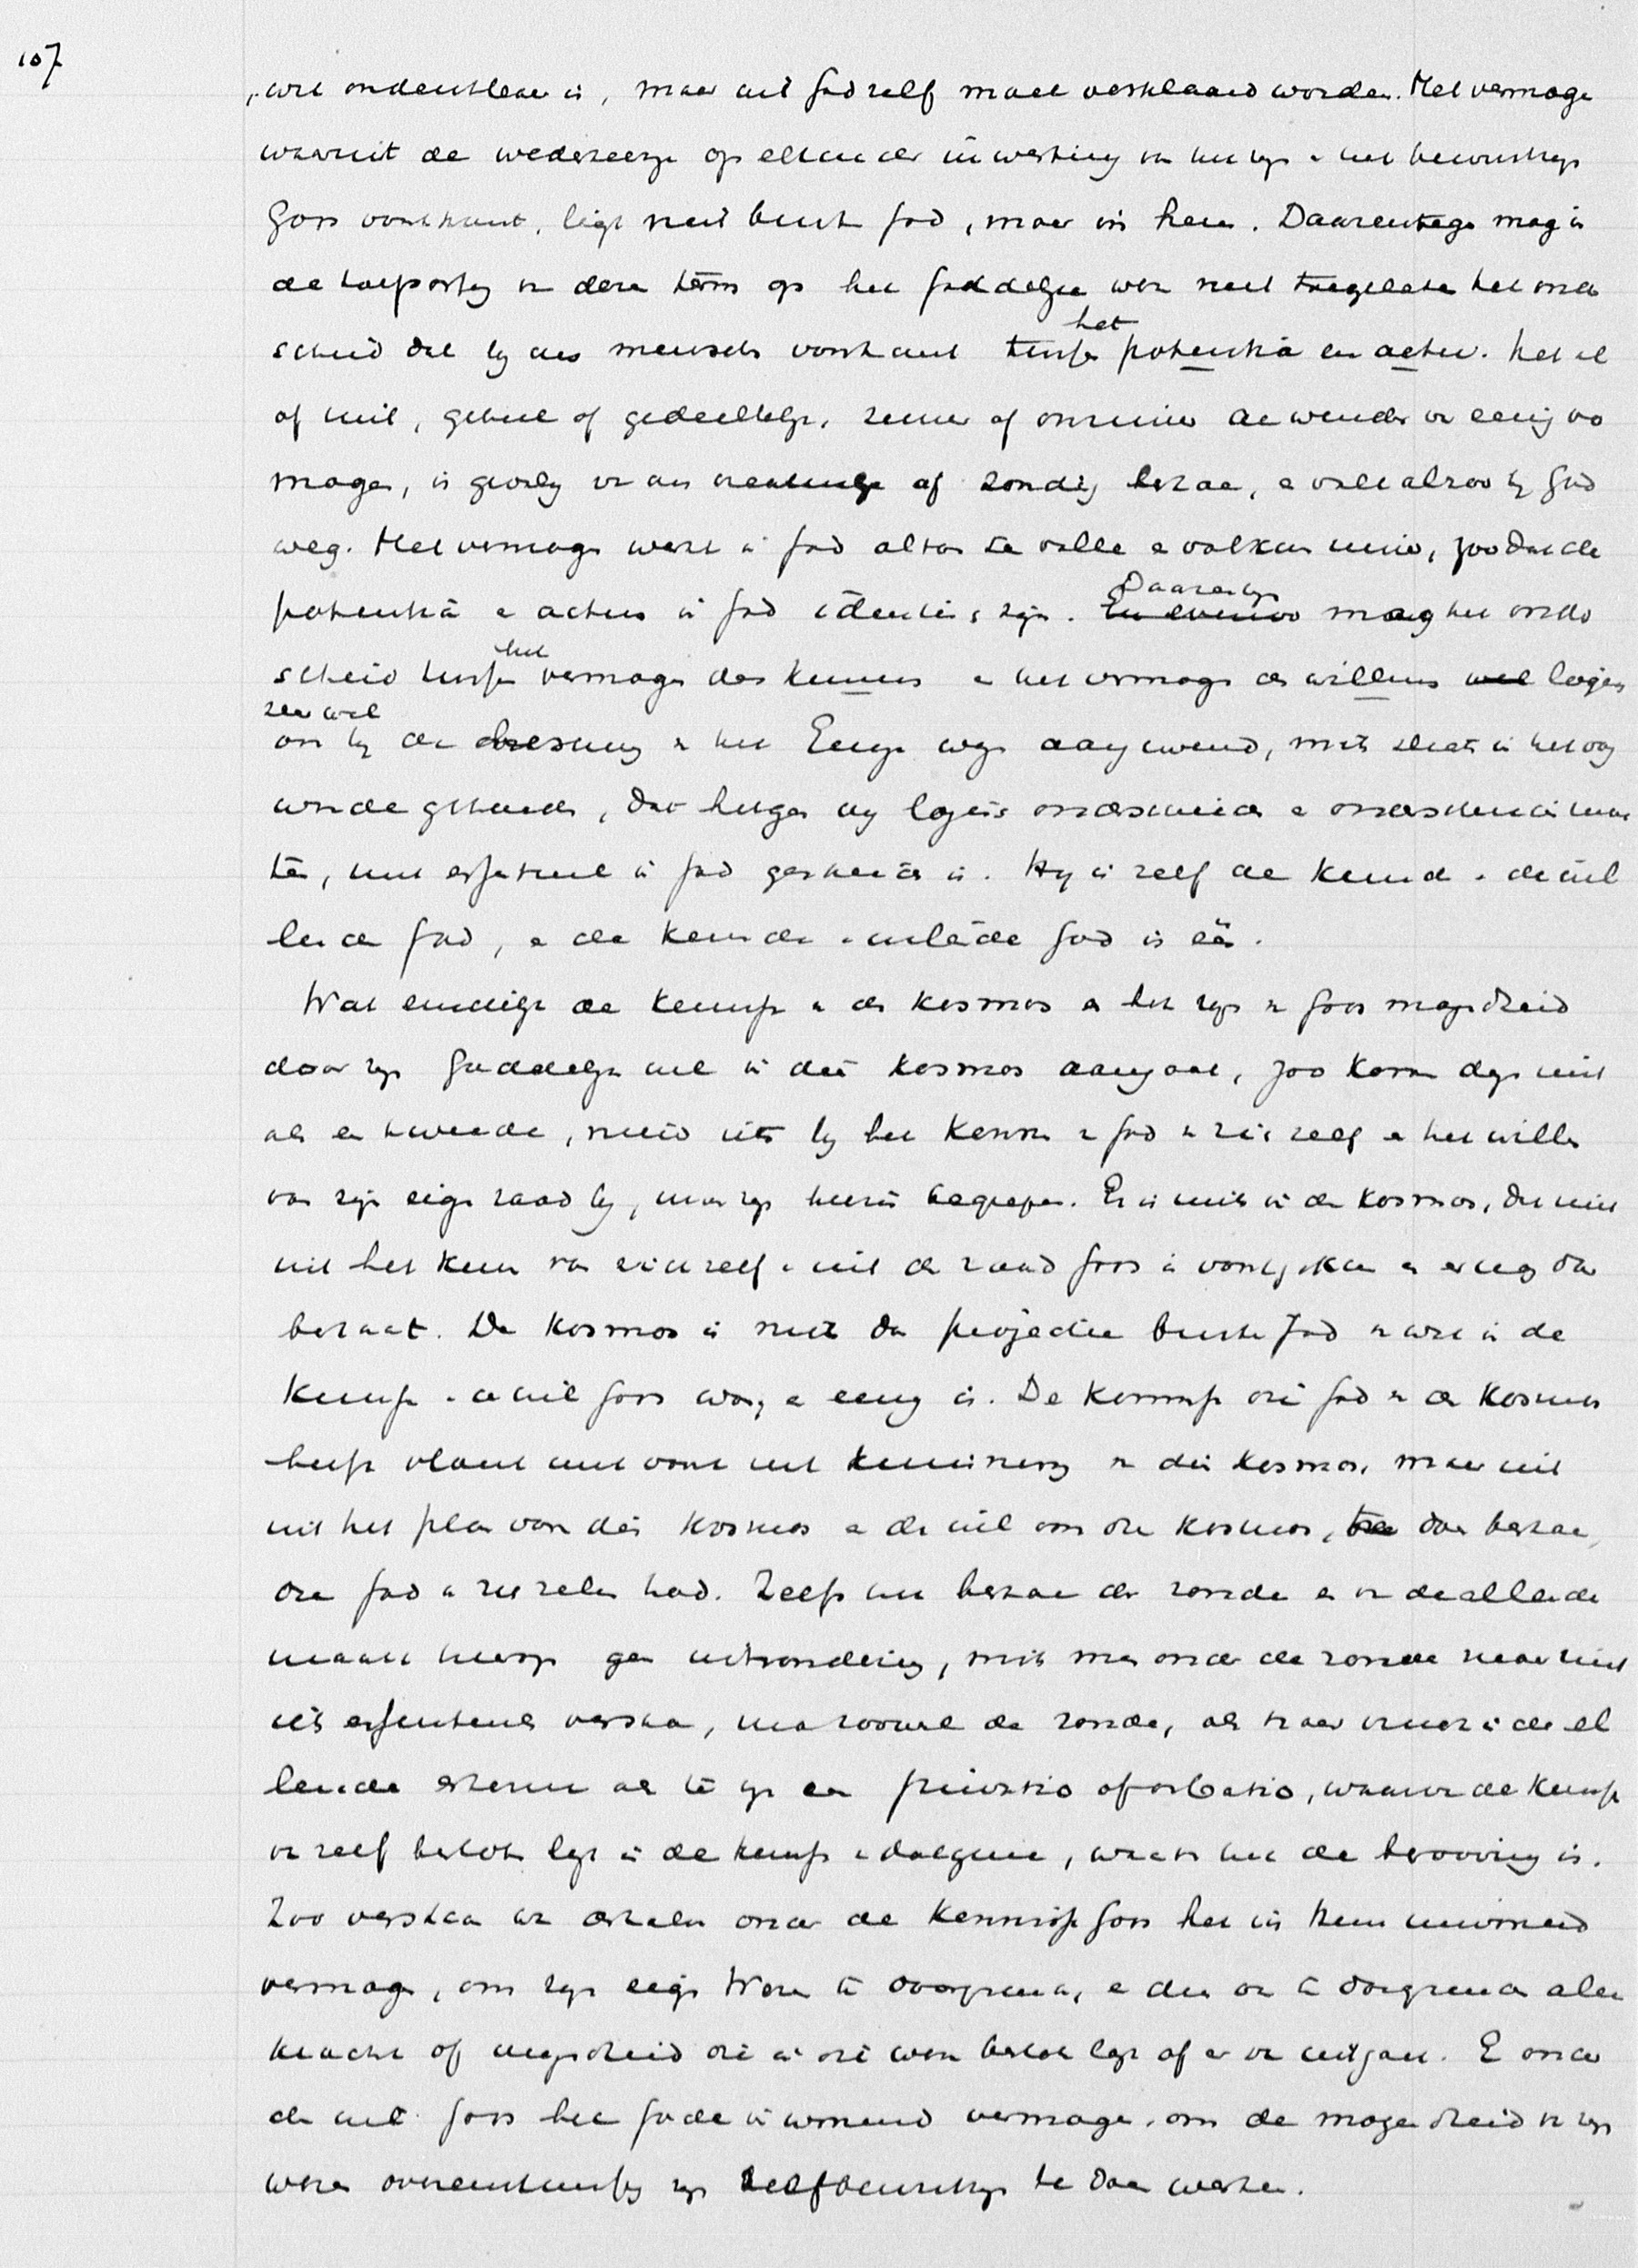 107
wil ondenkbaar is, maar uit God zelf moet verklaard worden. Het vermogen
waaruit de wederzijdse op elkander inwerking van het zijn en het bewustzijn
Gods voortkomt, ligt niet buiten God, maar in hem. Daarentegen mag in
de toepassing van deze term op het goddelijke wezen niet toegelaten het onder
scheid dat bij den mensch voorkomt tusschen het potentia en actu. Het al
of niet, geheel of gedeeltelijk, zuiver of onzuiver aanwenden van eenig ver
mogen, is gevolg van een creatuurlijk of zondig bestaan, en valt alzoo bij God
weg. Het vermogen werkt in God altoos ten volle en volkomen zuiver, zoodat de
potentia en actus in God identisch zijn. Daarentegen mag het onder
scheid tusschen het vermogen des kennens en het vermogen des willens
zeer wel bij de van het Eeuwige wezen aangewend, mits slechts in het oog
worde gehouden, dat hetgeen wij logisch onderscheiden en onderscheiden moe
ten, niet essentieel in God gescheiden is. Hij is zelf de kennende en de wil
lende God, en de kennende en willende God is één.
Wat eindelijk de kennis van den kosmos en het zijn van Gods mogendheid
door zijn goddelijken wil in dien kosmos aangaat, zoo komen deze niet
als een tweede, nieuw iets bij het kennen van God van zich zelf en het willen
van zijn eigen raad bij, maar zijn hierin begrepen. Er is niets in den kosmos, dat niet
uit het kennen van zich zelf en uit den raad Gods is voortgekomen en eeuwig daar
bestaat. De kosmos is niet dan projectie buiten God van wat in de
kennis en de wil Gods was, en eeuwig is. De kennis die God van den kosmos
heeft vloeit niet voort uit kennisneming van dien kosmos, maar uit
uit het plan van dien kosmos en de wil om dien kosmos, te doen bestaan,
die God in zich zelven had. Zelfs het bestaan der zonde en van de ellende
maakt hierop geen uitzondering, mits men onder de zonde maar niet
iets essentieels versta, maar zoowel de zonde, als haar vrucht in de el
lende erkenne als te zijn een privatio of orbatio, waarvan de kennis
van zelf besloten ligt in de kennis van datgene, waarvan het de berooving is.
Zoo verstaan we derhalve onder de kennis Gods het in Hem inwonend
vermogen, om zijn eigen Wezen te doorgronden, en dus ook te doorgronden alle
kracht of mogendheid die in dit wezen besloten ligt of er van uitgaat. En onder
den wil Gods het God inwonend vermogen, om de mogendheid van zijn
wezen overeenkomstig zijn zelfbewustzijn te doen werken.